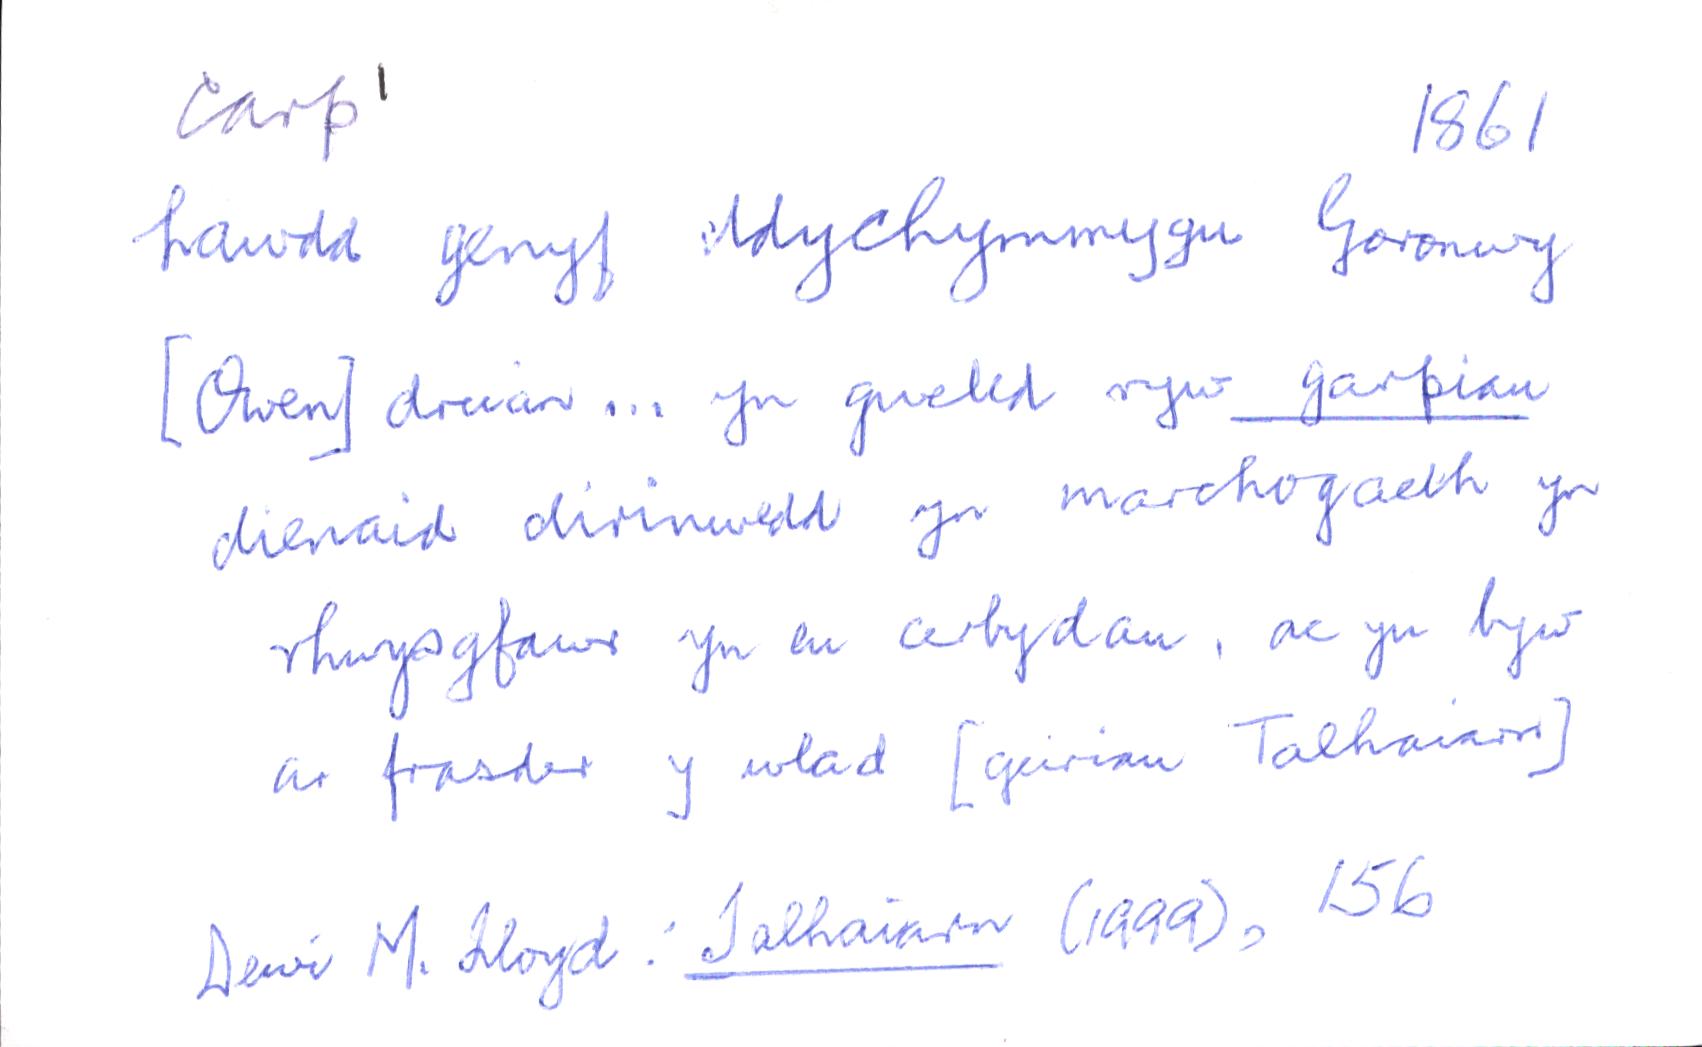 carp¹ 1861
hawdd genyf ddychymmygu Goronwy
[Owen] druan ... yn gweled ryw garpiau
dienaid dirinwedd yn marchogaeth yn
rhwysgfawr yn eu cerbydau, ac yn byw
ar frasder y wlad [geiriau Talhaiarn]
Dewi M. Lloyd : Talhaiarn (1999), 156